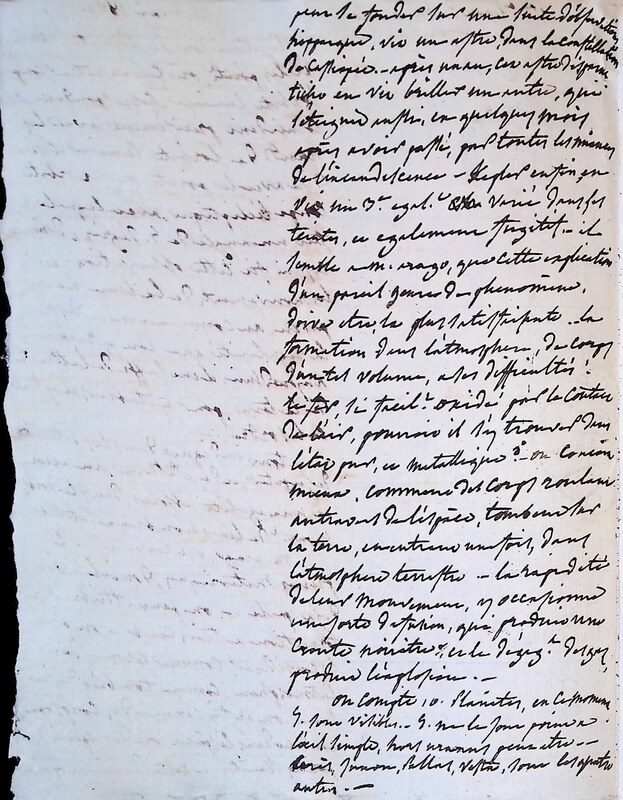 peut se fonder sur une suite d'observations
hipparque, vit un astre, dans la constellation
de Cassiopée. - après un an, cet astre disparut
ticho en vit briller un autre, qui
s'éteignit enfin, en quelques mois
après avoir passé, par toutes les nuances
de l'incandescence - Kepler enfin, en
vit un 3e. egal.t varié dans ses
teintes, et egalement fugitif. - il
semble a M. arago, que cette explication
d'un pareil genre de phenomène,
doive etre, la plus satisfaisante. - la
formation dans l'atmosphere, de corps
d'un tel volume, a ses difficultés :
le fer, si facil.t oxidé par le contact
de l'air, pourroit il s'y trouver dans
l'état pur, et metallique ? - on conçoit
mieux, comment des corps roulant
au travers de l'espace, tombent sur
la terre, en entrant une fois, dans
l'atmosphere terrestre - la rapidité
de leur mouvement, y occasionne
une sorte de fusion, qui produit une
croute noiratre, et le dégag.t des gaz
produit l'explosion. -
on compte 10. Planetes, en ce moment
5. sont visibles. - 5. ne le sont point a
l'oeil simple, hors uranus peut etre -
Cerès, Junon, Pallas, Vesta, sont les quatre
autres. -